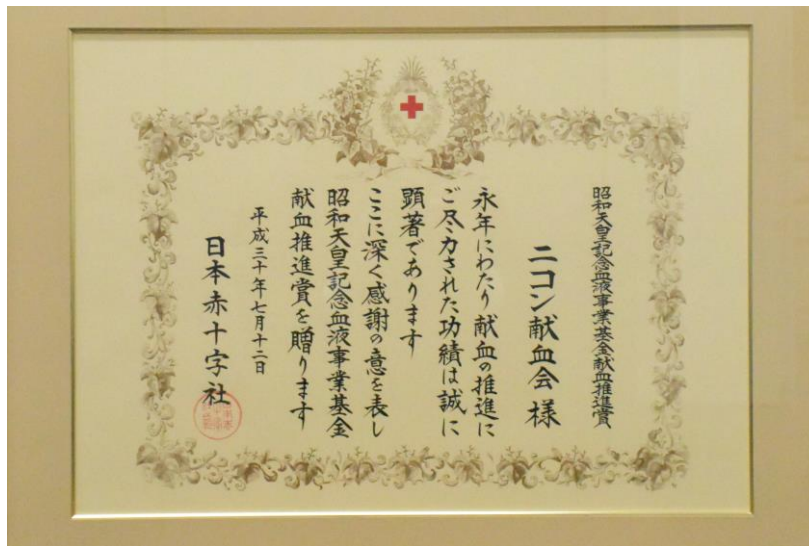 昭和天皇記念血液事業基金献血推進賞
ニコン献血会 様
永年にわたり献血の推進に
ご尽力された功績は誠に
顕著であります
ここに深く感謝の意を表し
昭和天皇記念血液事業基金
献血推進賞を贈ります
平成三十年七月十二日
日本赤十字社